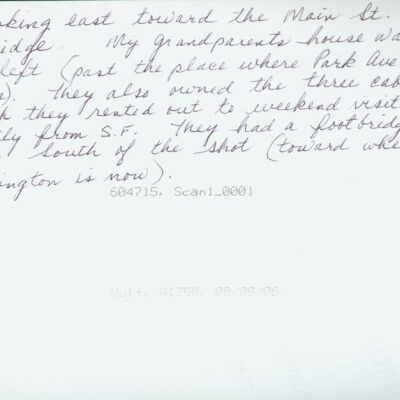 king east toward the Main St.
idge. My grandparents house wa
left (past the place where Park Ave
). They also owned the three cab
h they rented out to weekend visit
ly from S.F. They had a footbridg
South of the shot (toward whe
ington is now).
604715, Scan1_0001
Wolf, A1350, 08/09/06